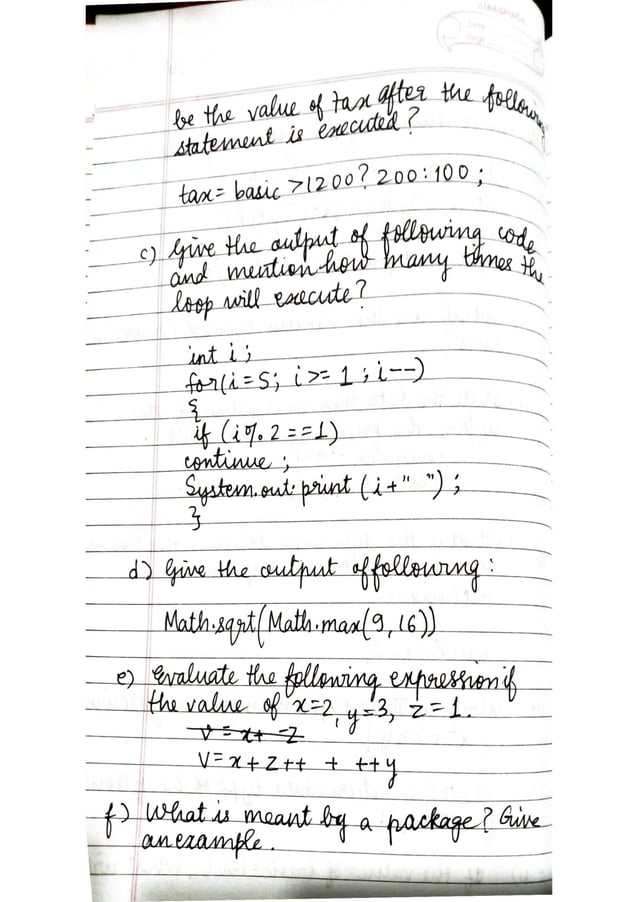 CLASSMATE
Date
Page
be the value of tax after the following
statement is executed?
tax = basic >1200? 200:100;
c) Give the output of following code
and mention how many times the
loop will execute?
int i;
for(i=5; i>=1; i--)
{
if (i%2==1)
continue;
System.out.print (i+" ");
}
d) Give the output of following:
Math.sqrt(Math.max(9,16))
e) Evaluate the following expression if
the value of x=2, y=3, z=1.
v = x + z
V=x+z++ + ++y
f) What is meant by a package? Give
an example.